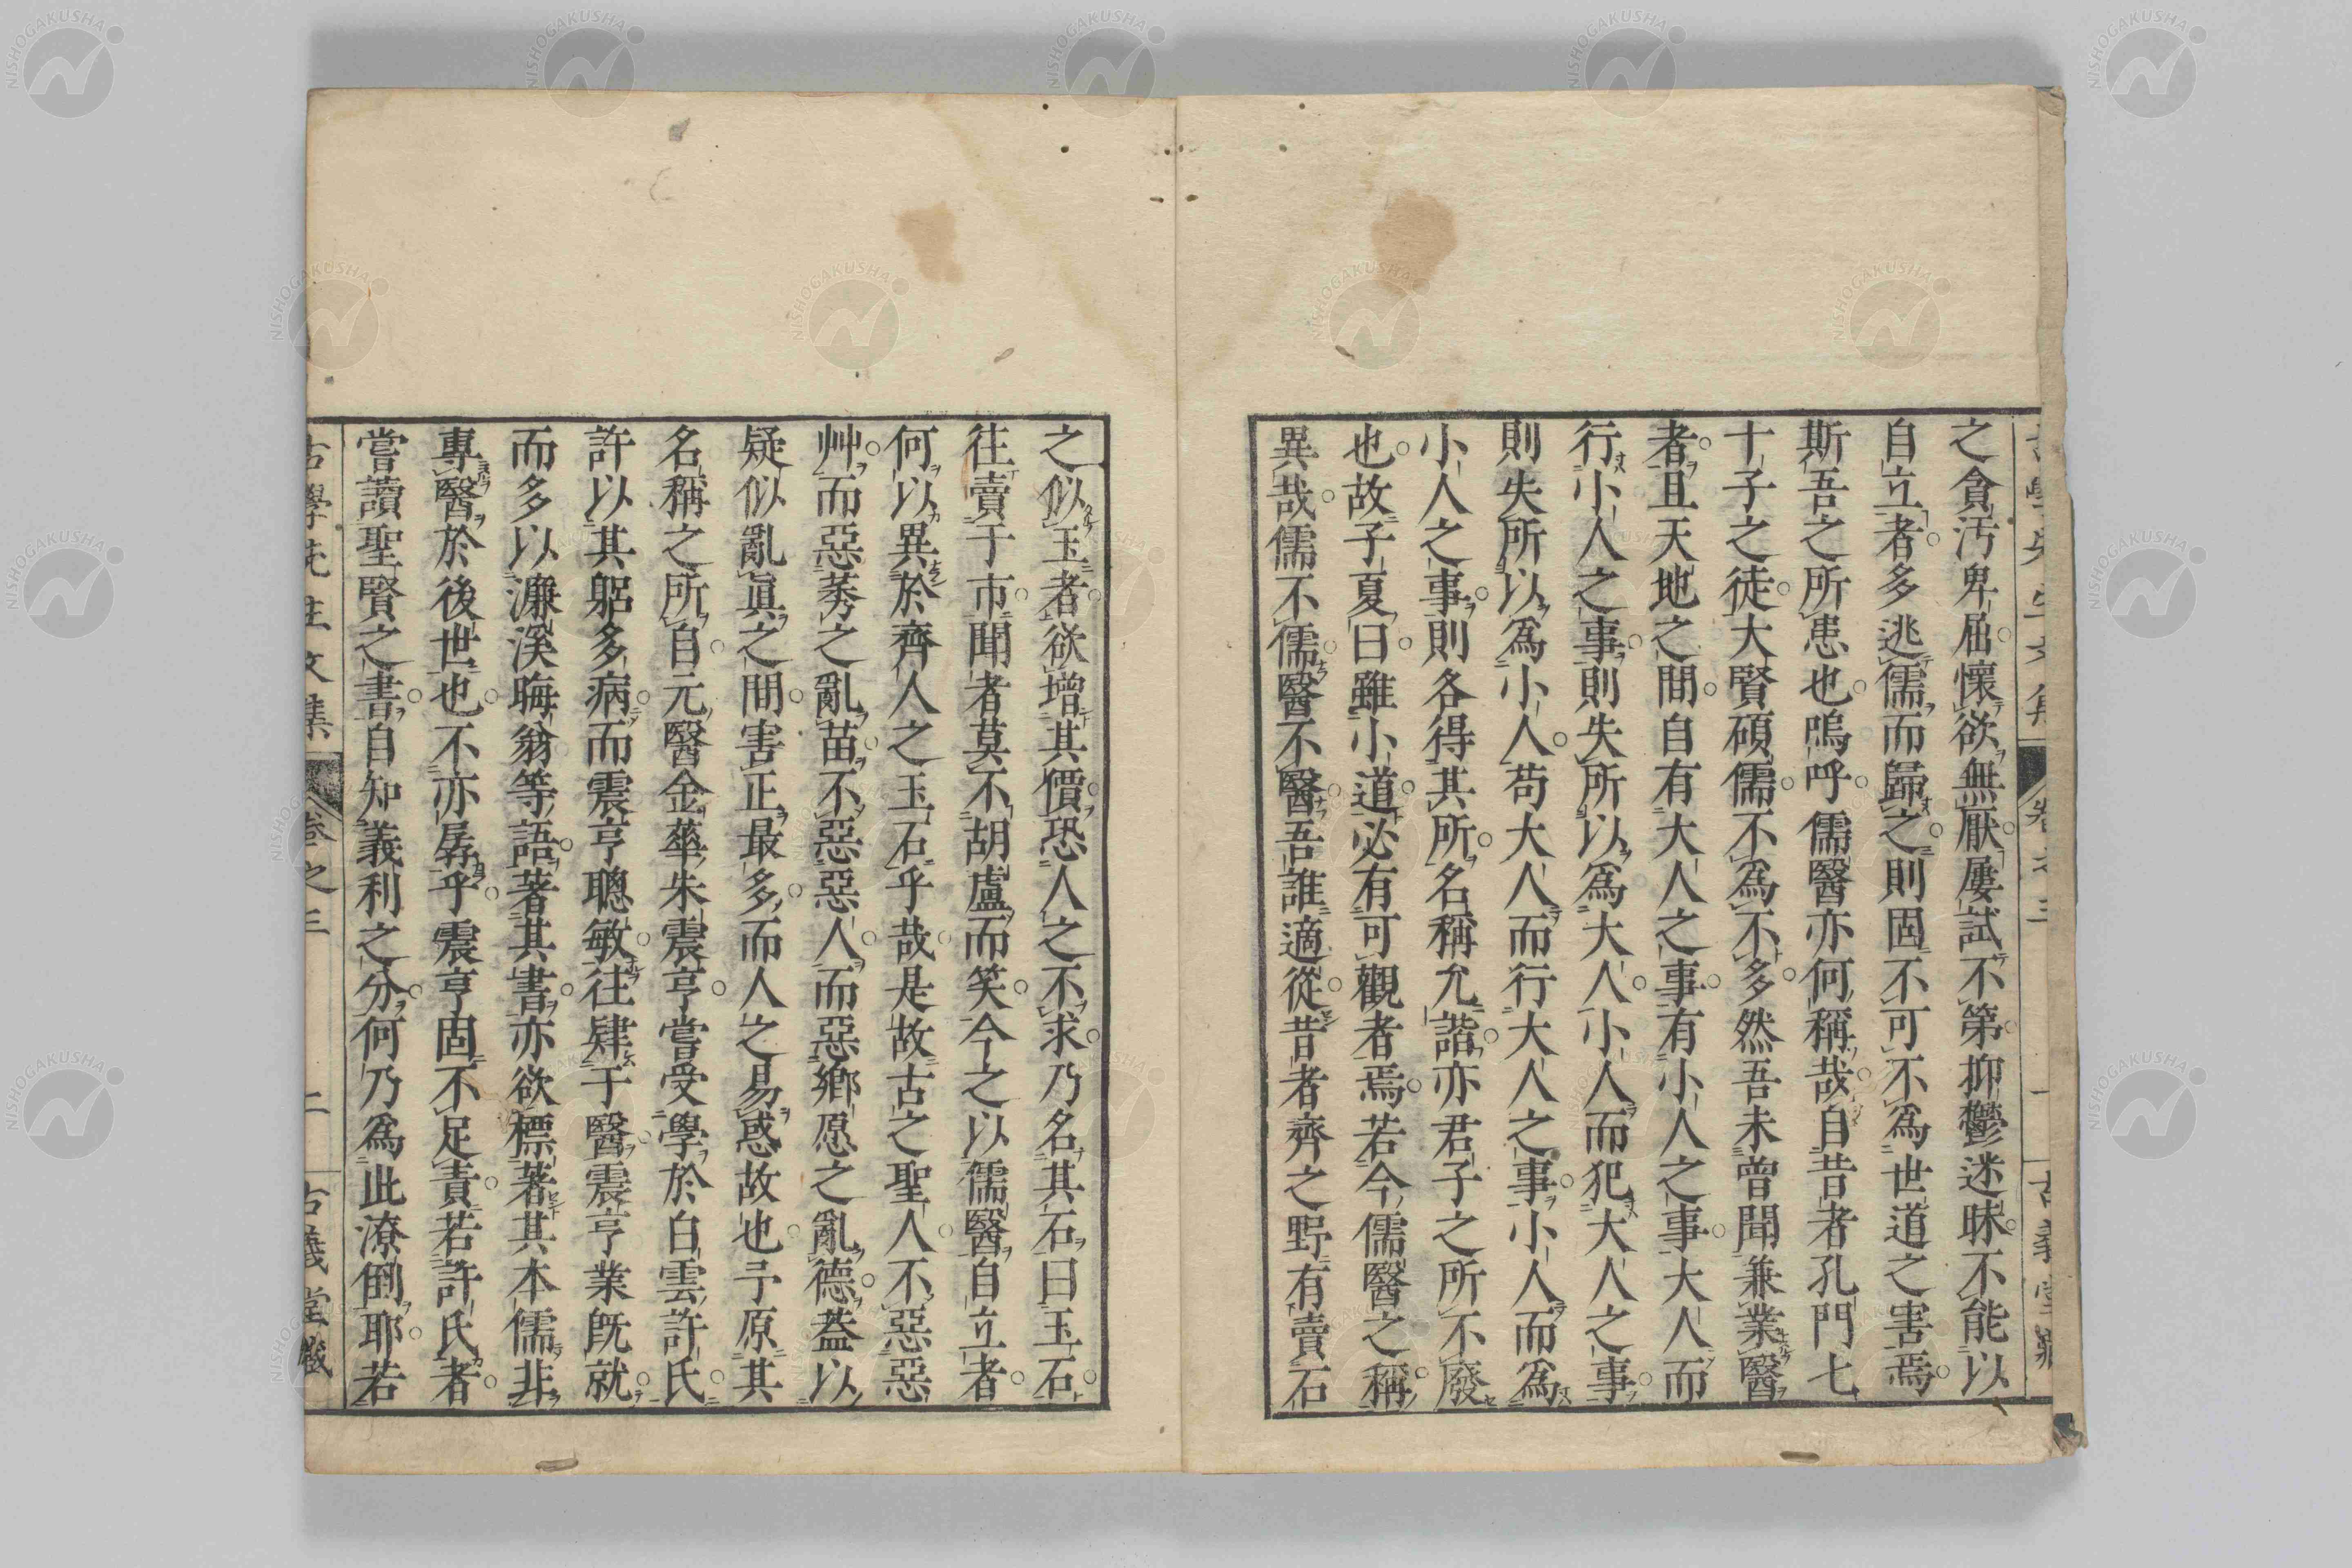 之貪汚卑屈懷欲無厭屢試不第抑鬱迷昧不能以
自立者多逃儒而歸之則固不可不爲世道之害焉
斯吾之所患也嗚呼儒醫亦何稱哉自昔者孔門七
十子之徒大賢碩儒不爲不多然吾未曾聞兼業醫
者且天地之間自有大人之事有小人之事大人而
行小人之事則失所以爲大人小人而犯大人之事
則失所以爲小人苟大人而行大人之事小人而爲
小人之事則各得其所名稱允諧亦君子之所不廢
也故子夏曰雖小道必有可觀者焉若今儒醫之稱
異哉儒不儒醫不醫吾誰適從昔者齊之野有賣石
之似玉者欲增其價恐人之不求乃名其石曰玉石
往賣于市聞者莫不胡盧而笑今之以儒醫自立者
何以異於齊人之玉石乎哉是故古之聖人不惡惡
艸而惡莠之亂苗不惡惡人而惡鄉愿之亂德蓋以
疑似亂眞之間害正最多而人之易惑故也予原其
名稱之所自元醫金華朱震亨嘗受學於白雲許氏
許以其躬多病而震亨聰敏往肄于醫震亨業既就
而多以濂溪晦翁等語著其書亦欲標著其本儒非
專醫於後世也不亦孱乎震亨固不足責若許氏者
嘗讀聖賢之書自知義利之分何乃爲此潦倒耶若
古學先生文集 卷之三 二 古義堂藏